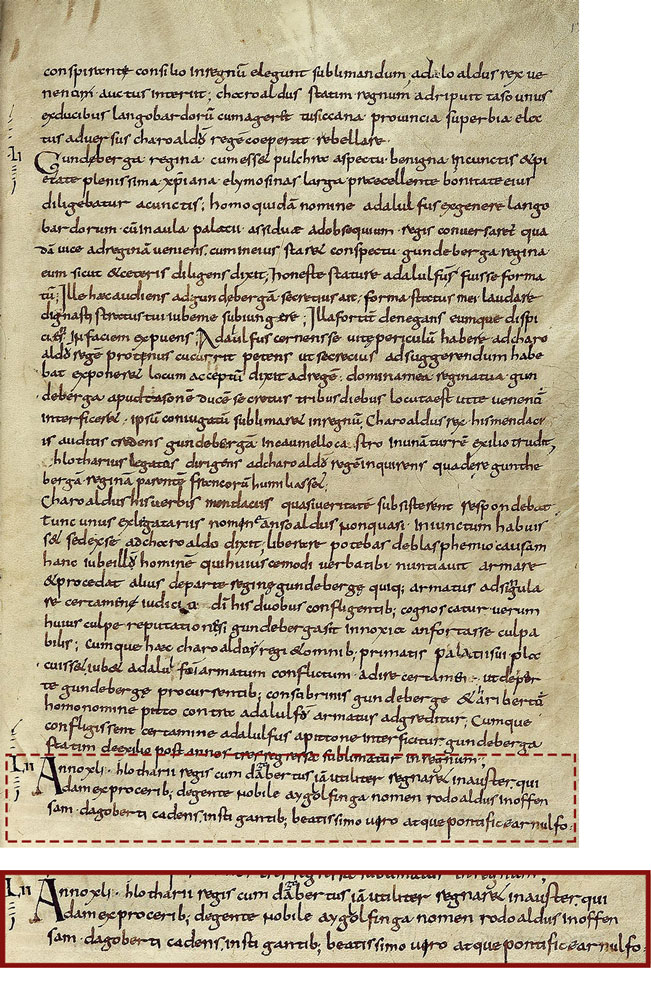 conspirante consilio in regnū elegunt sublimandum, adaloaldus rex ve
neno auctus interiit; charoaldus statim regnum adripuit taso unus
ex ducibus langobardorū cum ageret tusccana provincia superbia elac
tus adversus charoaldū regē coeperat rebellare.
Gundeberga regina cum esset pulchra aspectu benigna in cunctis & pi
etate plenissima xp̄iana elymosinas larga praecellente bonitate eius
diligebatur a cunctis; homo quidā nomine adalulfus ex genere lango
bardorum cū in aula palatii assiduae ad obsequium regis conversaret qua
dā vice ad reginā veniens, cum in eius staret conspectu gundeberga regina
eum sicut & ceteris diligens dixit; honeste stature adalulfus fuisse forma
tū; Ille haec audiens ad gundebergā secretius ait; forma status mei laudare
dignasti stratus tui iubeme subiungere; Illa fortit denegans eumque dispi
in faciem expuens; Adaulfus cernens se vite periculū habere ad charo
aldū regē protenus cucurrit petens ut secrecius ad suggerendum habe
bat exponeret locum acceptū dixit ad regē; domina mea regina tua gun
deberga apud tasonē ducē secretus tribus diebus locuta est ut te venenū
interficeret ipsū coniugatū sublimaret in regnū, Charoaldus rex his mendaci
is auditis credens gundebergā in caumello castro in unā turrē exilio trudit,
chlotharius legatus dirigens ad charoaldū regē inquirens qua de re gunthe
bergā reginā parentē francorū humiliasset
Charoaldus his verbis mendacius quasi veritate subsisterent respondebat
Tunc unus ex legatariis nomine ansoaldus non quasi iniunctum habuis
set sed ex se ad charoaldo dixit, liberare potebas de blasphemio causam
hanc iube illū hominē qui huiuscemodi verba tibi nuntiavit armare
& procedat alius de parte regine gundeberge quiq; armatus ad singula
re certamen; iudicio dī his duobus confligentib; cognoscatur verum
huius culpe reputationis gundeberga sit innoxia an fortasse culpa
bilis; cumque haec charoaldo regi & omnib; primatis palatii sui pla
cuisset iubet adalulfū armatum conflictum adire certamen ut de par
te gundeberge procurrentib; consubrinis gundeberge & ariberto
homo nomine pitto contra adalulfū armatus adgreditur; Cumque
confligissent certamine adalulfus a pittone interficitur gundeberga
statim de exilio post annos tres regressa sublimatur in regnum;
Lii Anno xli. hlotharii regis cum dagbertus iā utiliter regnaret in auster. qui
dam ex procerib; degente nobile aygolfinga nomen rodoaldus in offen
sam dagoberti cadens. instigantib; beatissimo viro atque pontifice arnulfo.
Lii Anno xli. hlotharii regis cum dagbertus iā utiliter regnaret in auster. qui
dam ex procerib; degente nobile aygolfinga nomen rodoaldus in offen
sam dagoberti cadens. instigantib; beatissimo viro atque pontifice arnulfo.